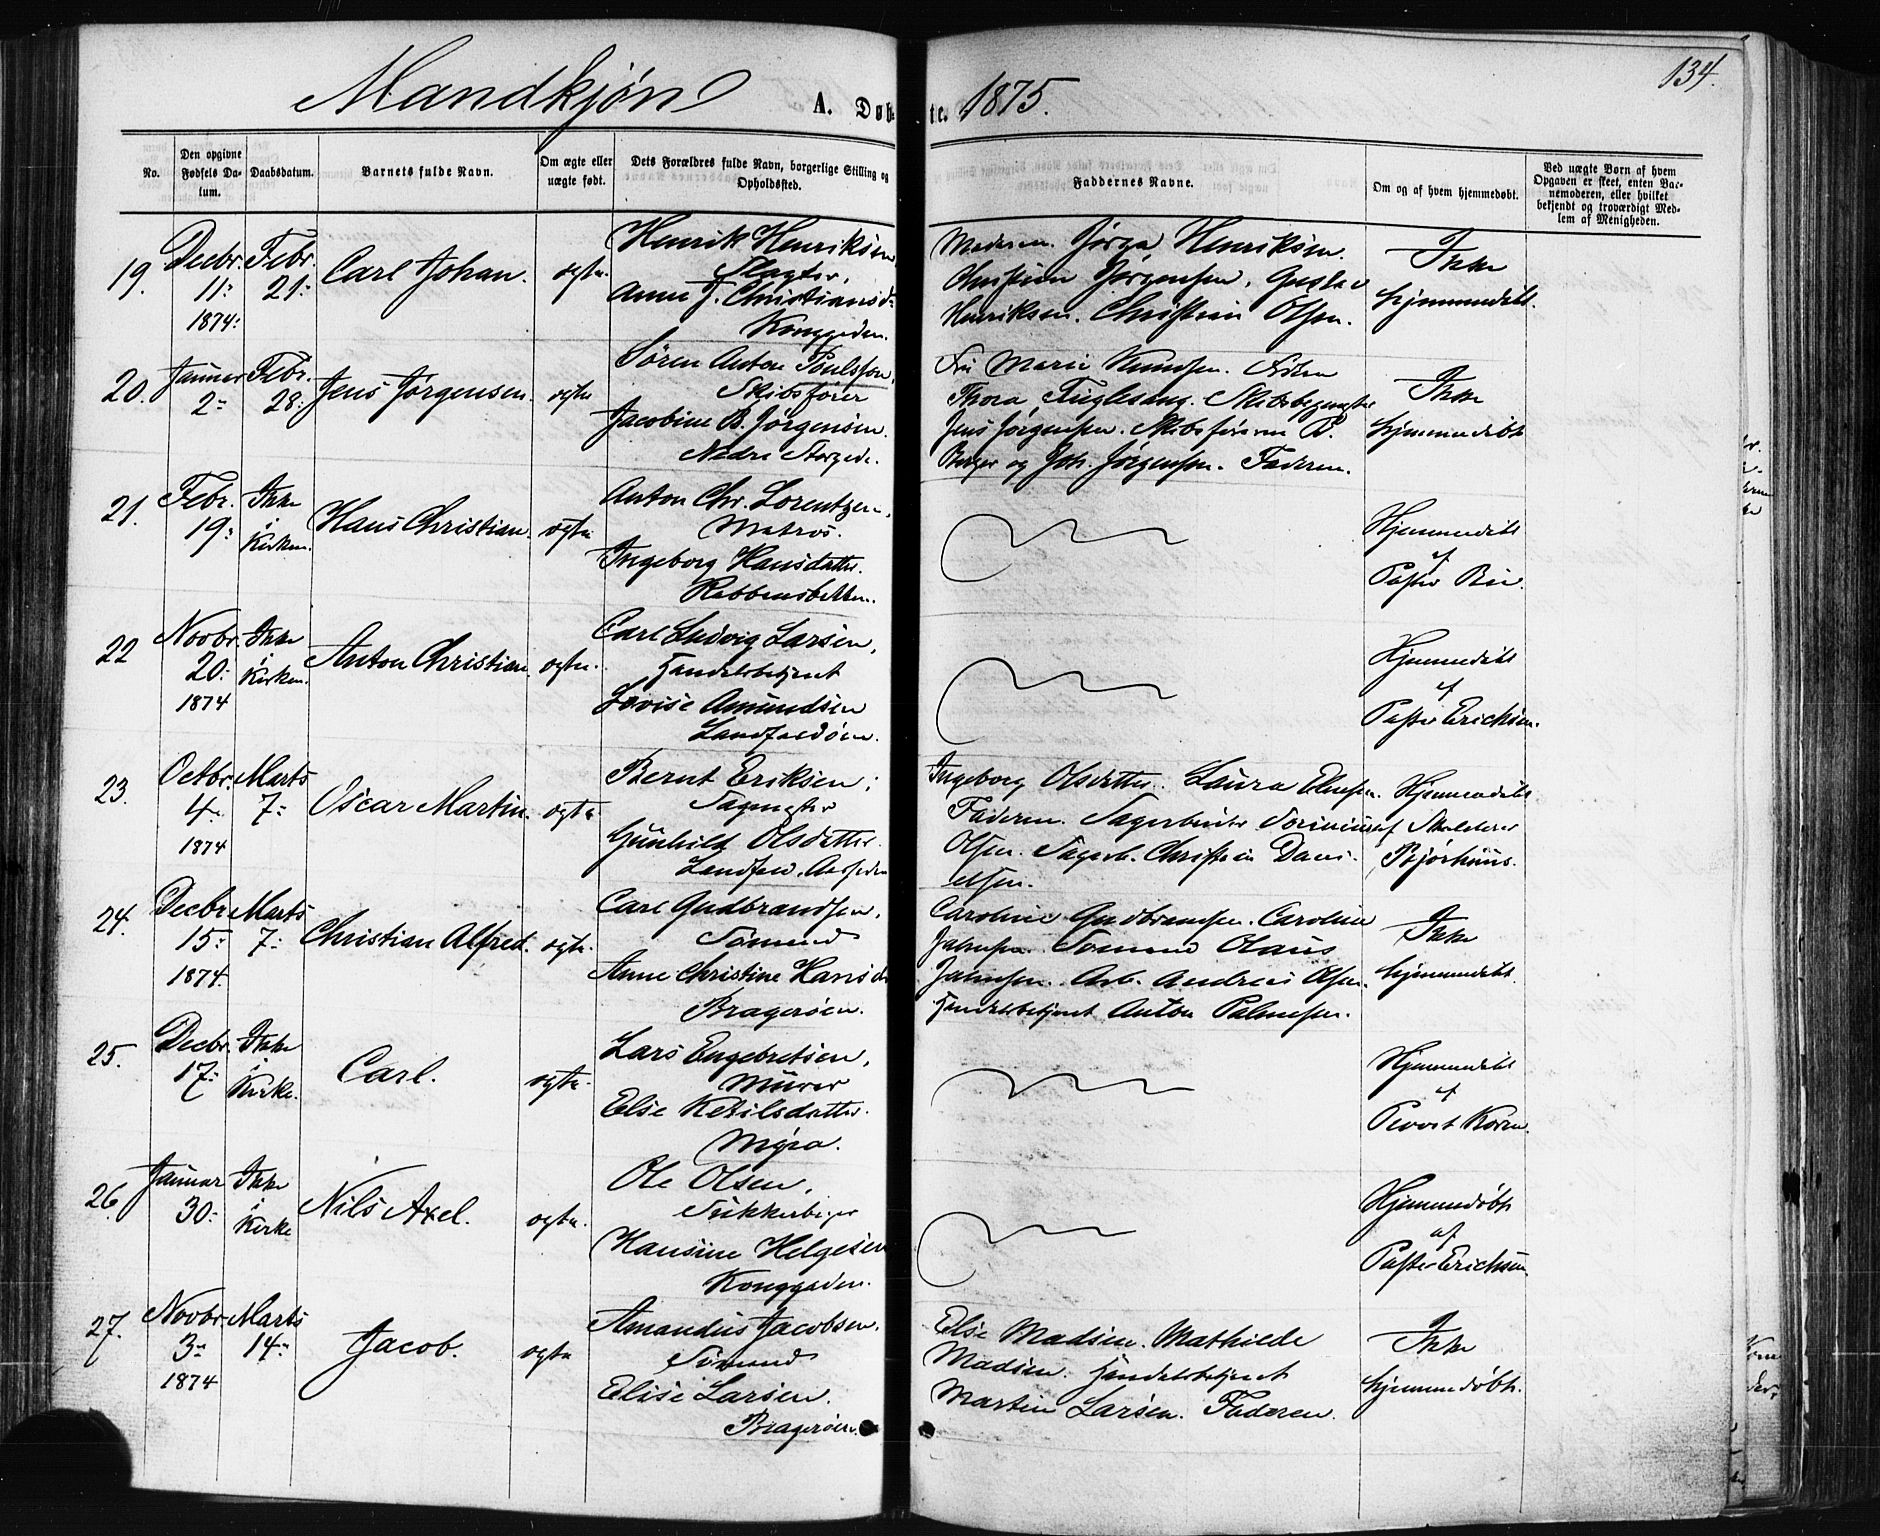 Mandkjøn A. Døbte. 1875.
134.
No.
Den opgivne Fødsels Datum.
Daabsdatum.
Barnets fulde Navn.
Om ægte eller uægte født.
Dets Forældres fulde Navn, borgerlige Stilling og Opholdssted.
Faddernes Navne.
Om og af hvem hjemmedøbt.
Ved uægte Børn af hvem Opgaven er skeet, enten Barnemoderen, eller hvilket bekjendt og troværdigt Medlem af Menigheden.
19. Decbr. 11: 1874: Febr. 21: Carl Johan. ægte.
Henrik Henriksen
Slagter,
Anne J. Christiansd:
Konggaden.
Moderen. Henriksen.
Christian Jørgensen. Gustav
Henriksen. Christian Olsen.
Ikke
hjemmedøbt.
20. Januar 2: Febr. 28: Jens Jørgensen. ægte
Søren Anton Poulsson,
Skibsfører
Jacobine B. Jørgensen.
Nedre Storgade.
Marie Knudsen. Frøken
Thora Fuglesang. Skibsbygmester
Jens Jørgensen. Skibsførerne P.
Berger og Joh. Jørgensen. Faderen.
Ikke
hjemmedøbt
21. Febr. 19: Ikke i Kirken. Hans Christian. ægte
Anton Chr. Lorentzen,
Matros.
Ingeborg Hansdatter.
Hjemmedøbt
af
Pastor Bie.
22 Novbr. 20: 1874 Ikke i Kirken. Anton Christian. ægte.
Carl Ludvig Larsen,
Handelsbetjent
Lovise Amundsen
Landfaldøen.
Hjemmedøbt
af
Pastor Erichsen.
23. Octbr. 4: 1874 Marts 7: Oscar Martin. ægte
Bernt Eriksen,
Sagmester
Gunhild Olsdatter.
Landfald.
Ingeborg Olsdatter. Laura
Faderen. Sagarbeider
Olsen. Sagarb. Christian Dani-
elsen.
Hjemmedøbt
af Skolelærer
Bjørhuus.
24. Decbr. 15: 1874. Marts 7: Christian Alfred. ægte.
Carl Gudbrandsen,
Sømand
Anne Christine Hansd:
Bragerøen.
Caroline Gudbrandsen. Caroline
Sømand Olaus
Arb. Andreas Olsen.
Handelsbetjent Anton Palmesen.
Ikke
hjemmedøbt.
25. Decbr. 17: Ikke i Kirke. Carl. ægte.
Lars Engebretsen,
Murer
Else Ketilsdatter.
Myra.
Hjemmedøbt
af
Provst Koren.
26. Januar 30: Ikke i Kirke Nils Axel. ægte.
Ole Olsen,
Hansine Helgesen
Konggaden.
Hjemmedøbt
af
Pastor Erichsen.
27. Novbr. 3: 1874 Marts 14: Jacob. ægte
Amandus Jacobsen,
Sømand
Elise Larsen.
Bragerøen.
Else Madsen. Mathilde
Madsen. Handelsbetjent
Martin Larsen. Faderen.
Ikke
hjemmedøbt.